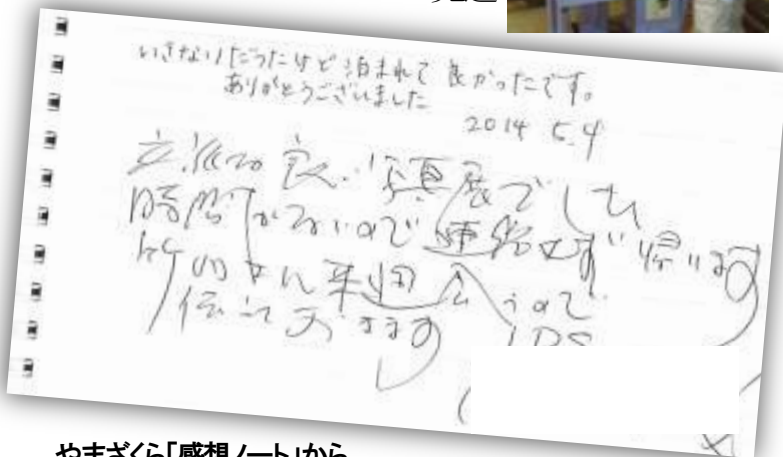 いきなりだったけど泊まれて良かったです。
ありがとうございました
2014 5.4
立派な良い写真展でした
時間がないので連絡せず帰ります
竹内さん来週会うので
伝えておきます
やまざくら「感想ノート」から